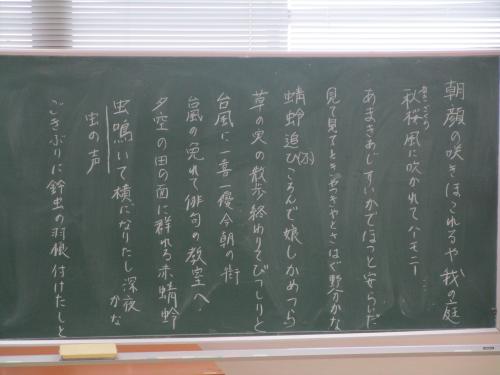 朝顔の咲きほこれるや我の庭
秋桜風に吹かれてハーモニー
あまきあじすいかでほっと安らいだ
見て見てときやきやとさはぐ野分かな
蜻蛉追ひころんで娘しかめつら
草の実の散歩終わりてびっしりと
台風に一喜一優今朝の街
台風の免れて俳句の教室へ
夕空の田の面に群れる赤蜻蛉
虫鳴いて横になりたし深夜かな
虫の声
ごきぶりに鈴虫の羽根付けたしと